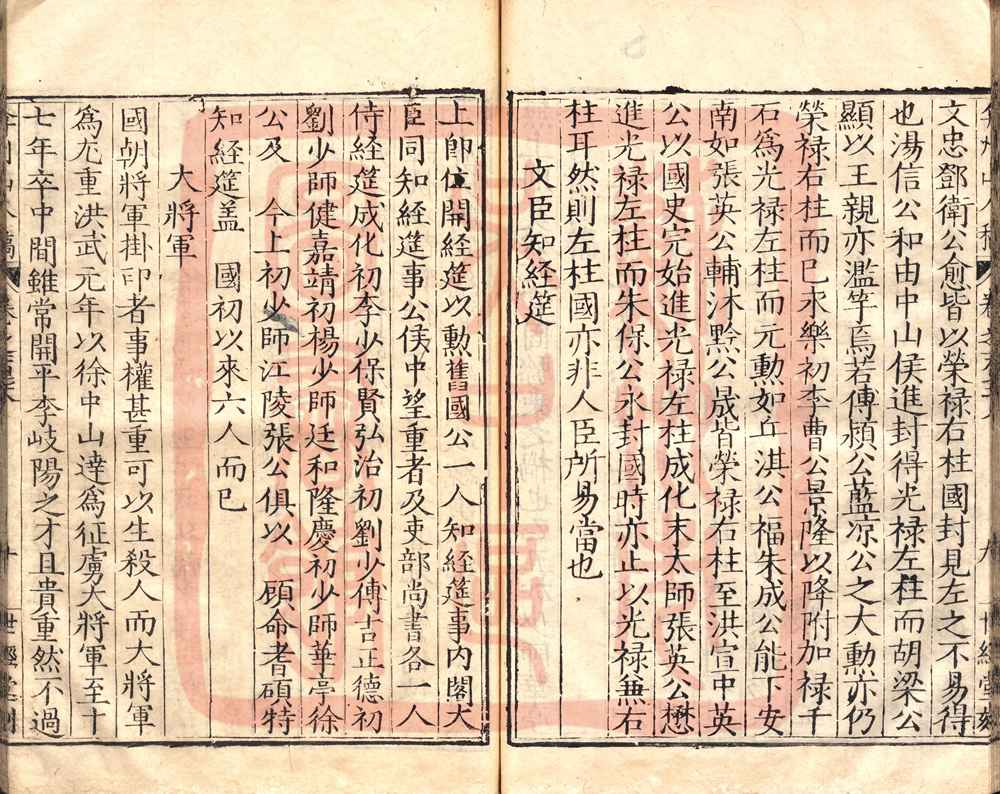 文忠鄧衛公愈皆以榮禄右柱國封見左之不易得
也湯信公和由中山侯進封得光禄左柱而胡梁公
顯以王親亦濫竽焉若傅潁公藍凉公之大勳亦仍
榮禄右柱而已永樂初李曹公景隆以降附加禄千
石為光禄左柱而元勲如丘淇公福朱成公能下安
南如張英公輔沐黔公晟皆榮禄右柱至洪宣中英
公以國史完始進光禄左柱成化末太師張英公懋
進光禄左柱而朱保公永封國時亦止以光禄兼右
柱耳然則左柱國亦非人臣所易當也
文臣知經筵
上即位開經筵以勲舊國公一人知經筵事内閣大
臣同知經筵事公侯中望重者及吏部尚書各一人
侍經筵成化初李少保賢弘治初劉少傅吉正德初
劉少師健嘉靖初楊少師廷和隆慶初少師華亭徐
公及今上初少師江陵張公俱以顧命耆碩特
知經筵盖國初以來六人而已
大將軍
國朝將軍掛印者事權甚重可以生殺人而大將軍
為尤重洪武元年以徐中山達為征虜大將軍至十
七年卒中間雖常開平李岐陽之才且貴重然不過